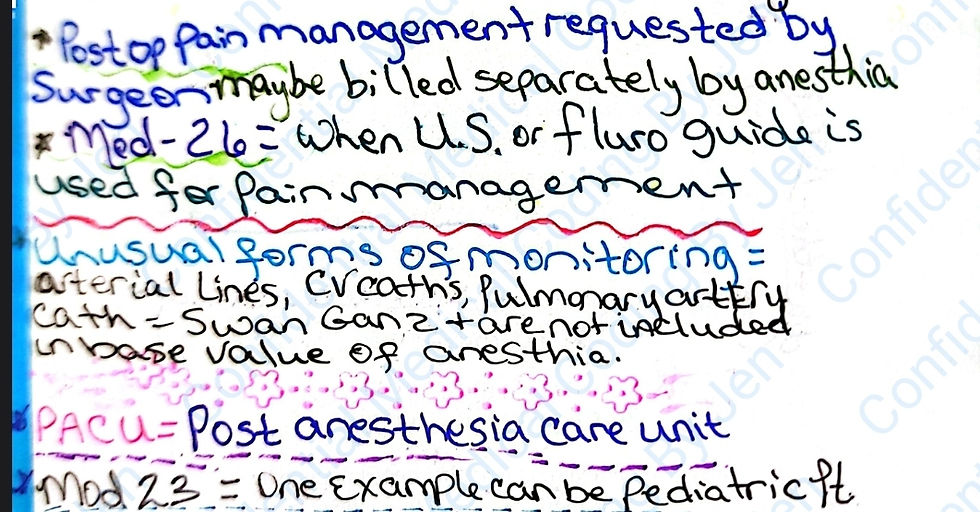 * Post op Pain management requested by
Surgeon maybe billed separately by anesthia
* Med-26 = when U.S. or fluro guide is
used for Pain management
* Unusual forms of monitoring =
arterial Lines, CV caths, Pulmonary artery
Cath - Swan Ganz + are not included
in base value of anesthia.
* PACU = Post anesthesia care unit
* Mod 23 = One Example can be Pediatric Pt.